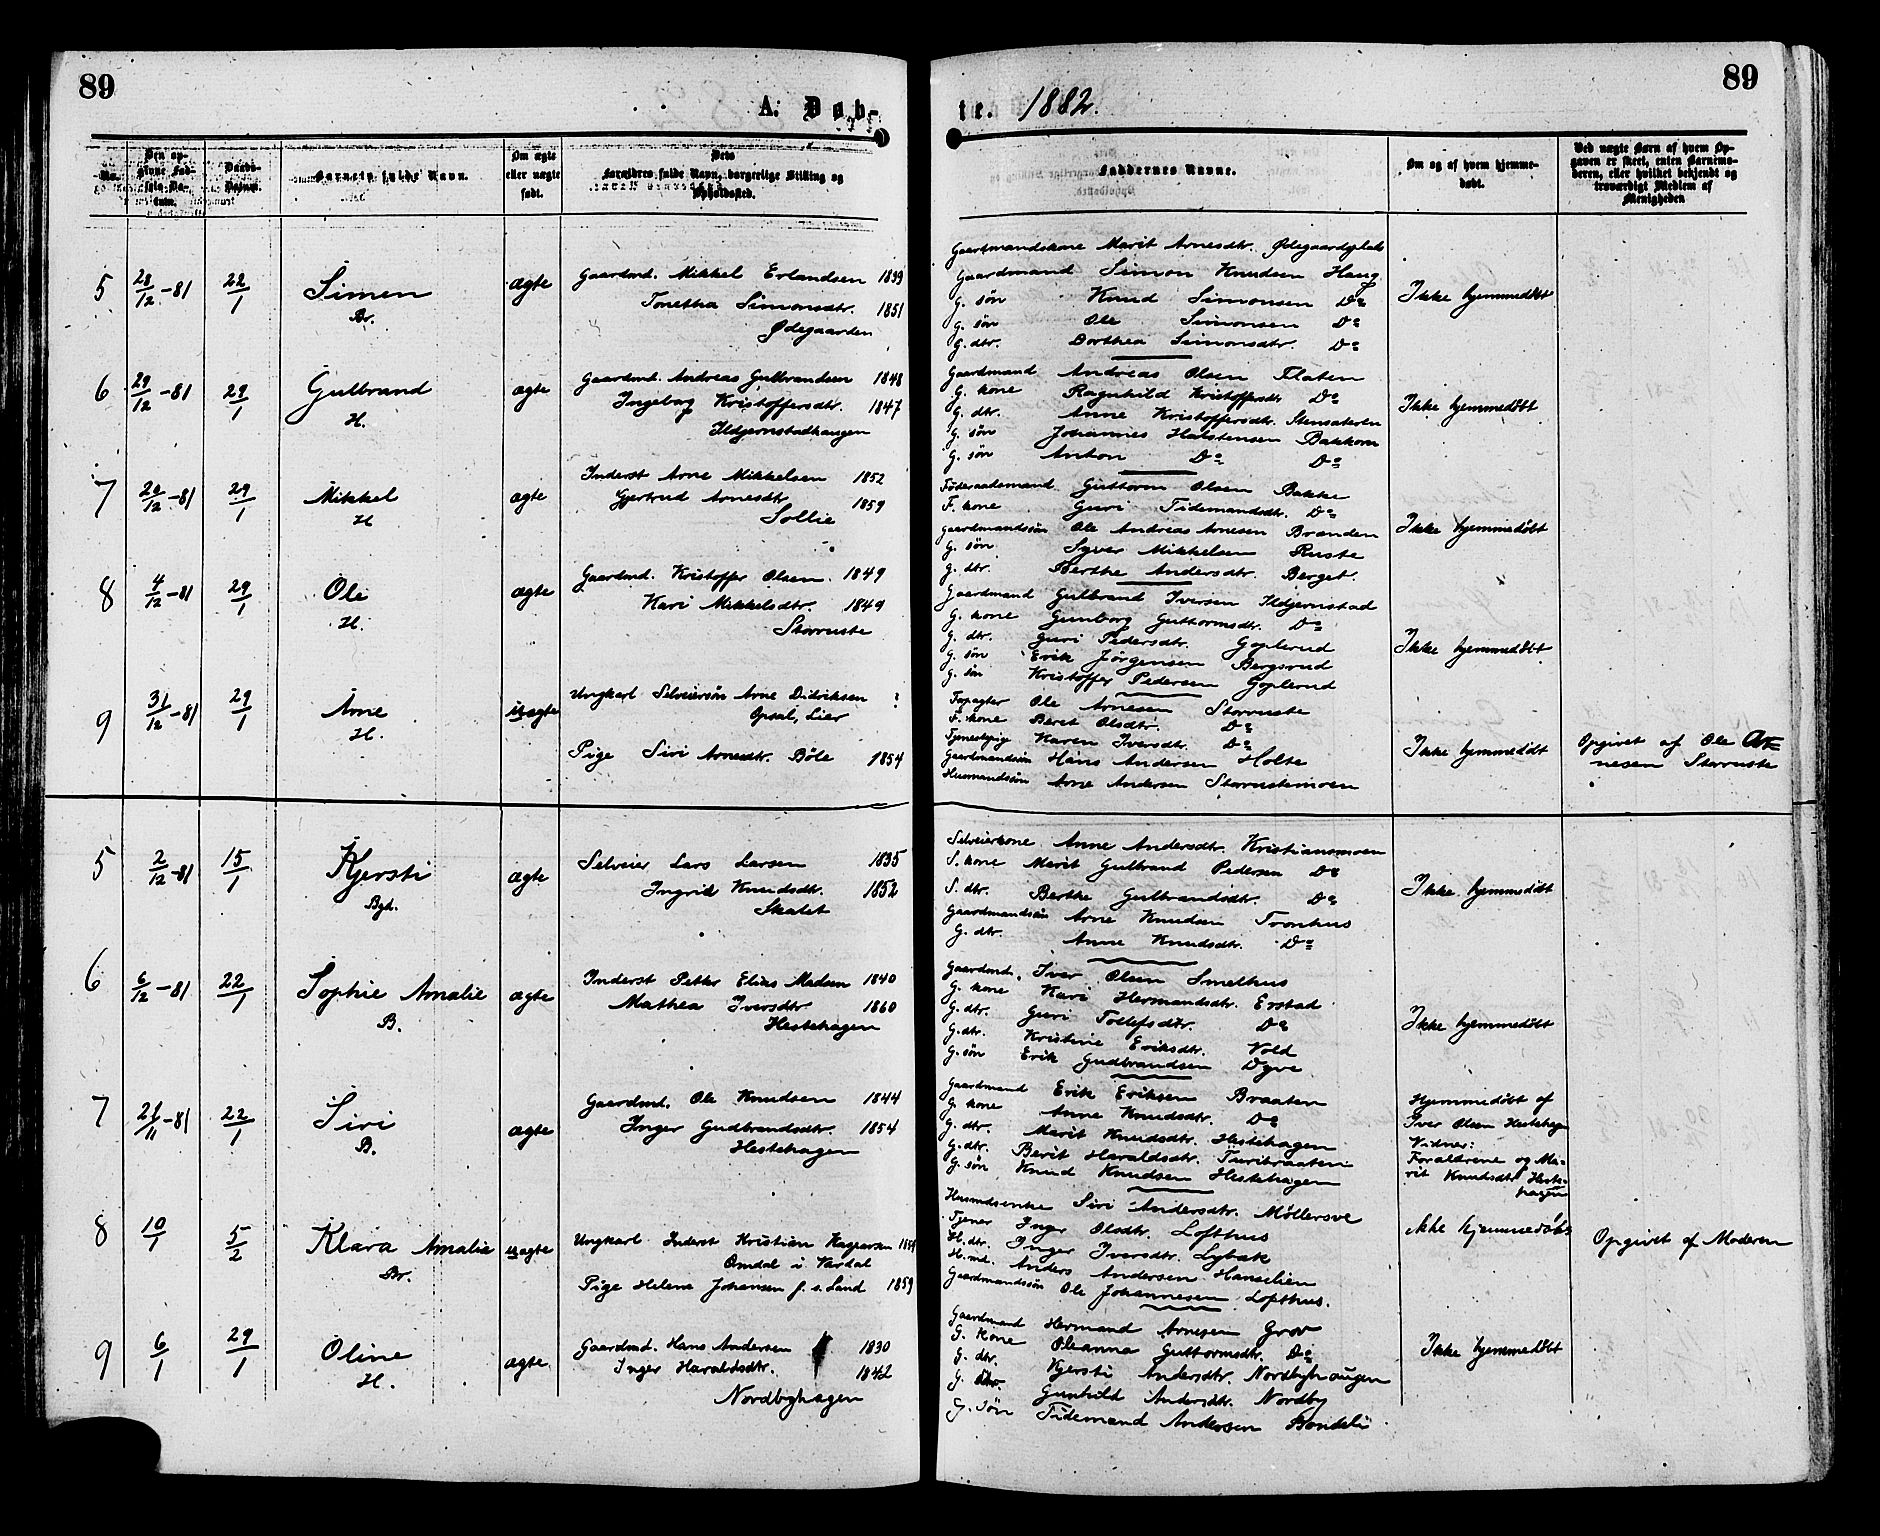 89
A. Døb-
No.
Den op-
givne Fød-
sels Da-
tum.
Daabs-
Datum.
Barnets fulde Navn.
Om ægte
eller uægte
født.
Dets
Forældres fulde Navn, borgerlige Stilling og
Opholdssted.
5 28/12-81 22/1 Simen ægte Gaardmd. Mikkel Erlandsen 1839
Br. Tonetha Simonsdtr. 1851
Ødegaarden
6 29/12-81 29/1 Gulbrand ægte Gaardmd. Andreas Gulbrandsen 1848
H. Ingeborg Kristoffersdtr. 1847
Ildjernstadhaugen
7 20/12-81 29/1 Mikkel ægte Inderst Arne Mikkelsen 1852
H Gjertrud Arnesdtr 1859
Sollie
8 4/12-81 29/1 Ole ægte Gaardmd. Kristoffer Olsen 1849
H. Kari Mikkelsdtr. 1849
Storruste
9 31/12-81 29/1 Arne uægte Ungkarl Selveiersøn Arne Didriksen ?
H. Opsal, Lier
Pige Siri Arnesdtr. Bøle 1854
5 2/12-81 15/1 Kjersti ægte Selveier Lars Larsen 1835
Bgh. Ingrid Knudsdtr. 1852
Skalet
6 6/12-81 22/1 Sophie Amalie ægte Inderst Petter Elias Madsen 1840
B. Mathea Iversdtr 1860
Hestehagen
7 21/11-81 22/1 Siri ægte Gaardmd. Ole Knudsen 1844
B. Inger Gudbrandsdtr. 1854
Hestehagen
8 10/1 5/2 Klara Amalie uægte Ungkarl Inderst Kristian Kaspersen
Br. Omdal i Vardal
Pige Helene Johansen f. s. Land 1859
9 6/1 29/1 Oline ægte Gaardmd. Hans Andersen 1830
H. Inger Haraldsdtr. 1842
Nordbyhagen
89
te. 1882.
Faddernes Navne.
Om og af hvem hjemme-
døbt.
Ved uægte Børn af hvem Op-
gaven er skeet, enten Barnemo-
deren, eller hvilket bekjendt og
troværdigt Medlem af
Menigheden
Gaardmandskone Marit Arnesdtr. Ødegaardsplads
Gaardmand Simon Knudsen Haug
G. søn Knud Simonsen Do Ikke hjemmedøbt
G. søn Ole Simonsen Do
G. dtr. Dorthea Simonsdtr. Do
Gaardmand Andreas Olsen Flaten
G. kone Ragnhild Kristoffersdtr Do Ikke hjemmedøbt
G. dtr. Anne Kristoffersdtr. Stensakeren
G. søn Johannes Halstensen Bakkom
G. søn Anton Do Do
Føderaadsmand Guttorm Olsen Bakke
F. kone Guri Tidemandsdtr. Do
Gaardmandsøn Ole Andreas Arnesen Brænden Ikke hjemmedøbt
G. søn Syver Mikkelsen Ruste
G. dtr. Berthe Andersdtr. Berget.
Gaardmand Gulbrand Iversen Ildjernstad
G. kone Gunborg Guttormsdtr. Do
G. dtr. Guri Pedersdtr. Goplerud Ikke hjemmedøbt
G. søn Erik Jørgensen Bergsrud
G. søn Kristoffer Pedersen Goplerud
Forpagter Ole Arnesen Storruste
F. kone Beret Olsdtr. Do
Tjenestepige Karen Iversdtr. Do Ikke hjemmedøbt Opgivet af Ole Ar-
Gaardmandsøn Hans Andersen Holte nesen Storruste
Husmandsøn Arne Andersen Storrustemoen
Selveierkone Anne Andersdtr. Kristiansmoen
S. kone Marit Gulbrand Pedersen Do
S. dtr. Berthe Gulbrandsdtr. Do Ikke hjemmedøbt
Gaardmandsøn Arne Knudsen Tronhus
G. dtr. Anne Knudsdtr. Do
Gaardmd. Iver Olsen Smelhus
G. kone Kari Hermandsdtr. Erstad
G. dtr. Guri Tollefsdtr. Do Ikke hjemmedøbt
G. dtr. Kristine Eriksdtr. Vold
G. søn Erik Gudbrandsen Dyve
Gaardmand Erik Eriksen Braaten Hjemmedøbt af
G. kone Anne Knudsdtr. Do Iver Olsen Hestehagen
G. dtr. Marit Knudsdtr. Hestehagen Vidner:
G. dtr. Berit Haraldsdtr. Turibraaten Forældrene og Ma-
G. søn Knud Knudsen Hestehagen rit Knudsdtr Heste-
hagen
Husmdsenke Siri Andersdtr. Møllersve
Tjener Inger Olsdtr. Lofthus ikke hjemmedøbt Opgivet af Moderen
H. dtr. Inger Iversdtr. Lybæk
H. md. Anders Andersen Hanselien
Gaardmandssøn Ole Johannesen Lofthus.
Gaardmand Hermand Arnesen Grov
G. kone Oleanna Guttormsdtr. Do Ikke hjemmedøbt
G. dtr. Kjersti Andersdtr. Nordbyhaugen
G. dtr. Gunhild Andersdtr. Nordby
G. søn Tidemand Andersen Bondeli